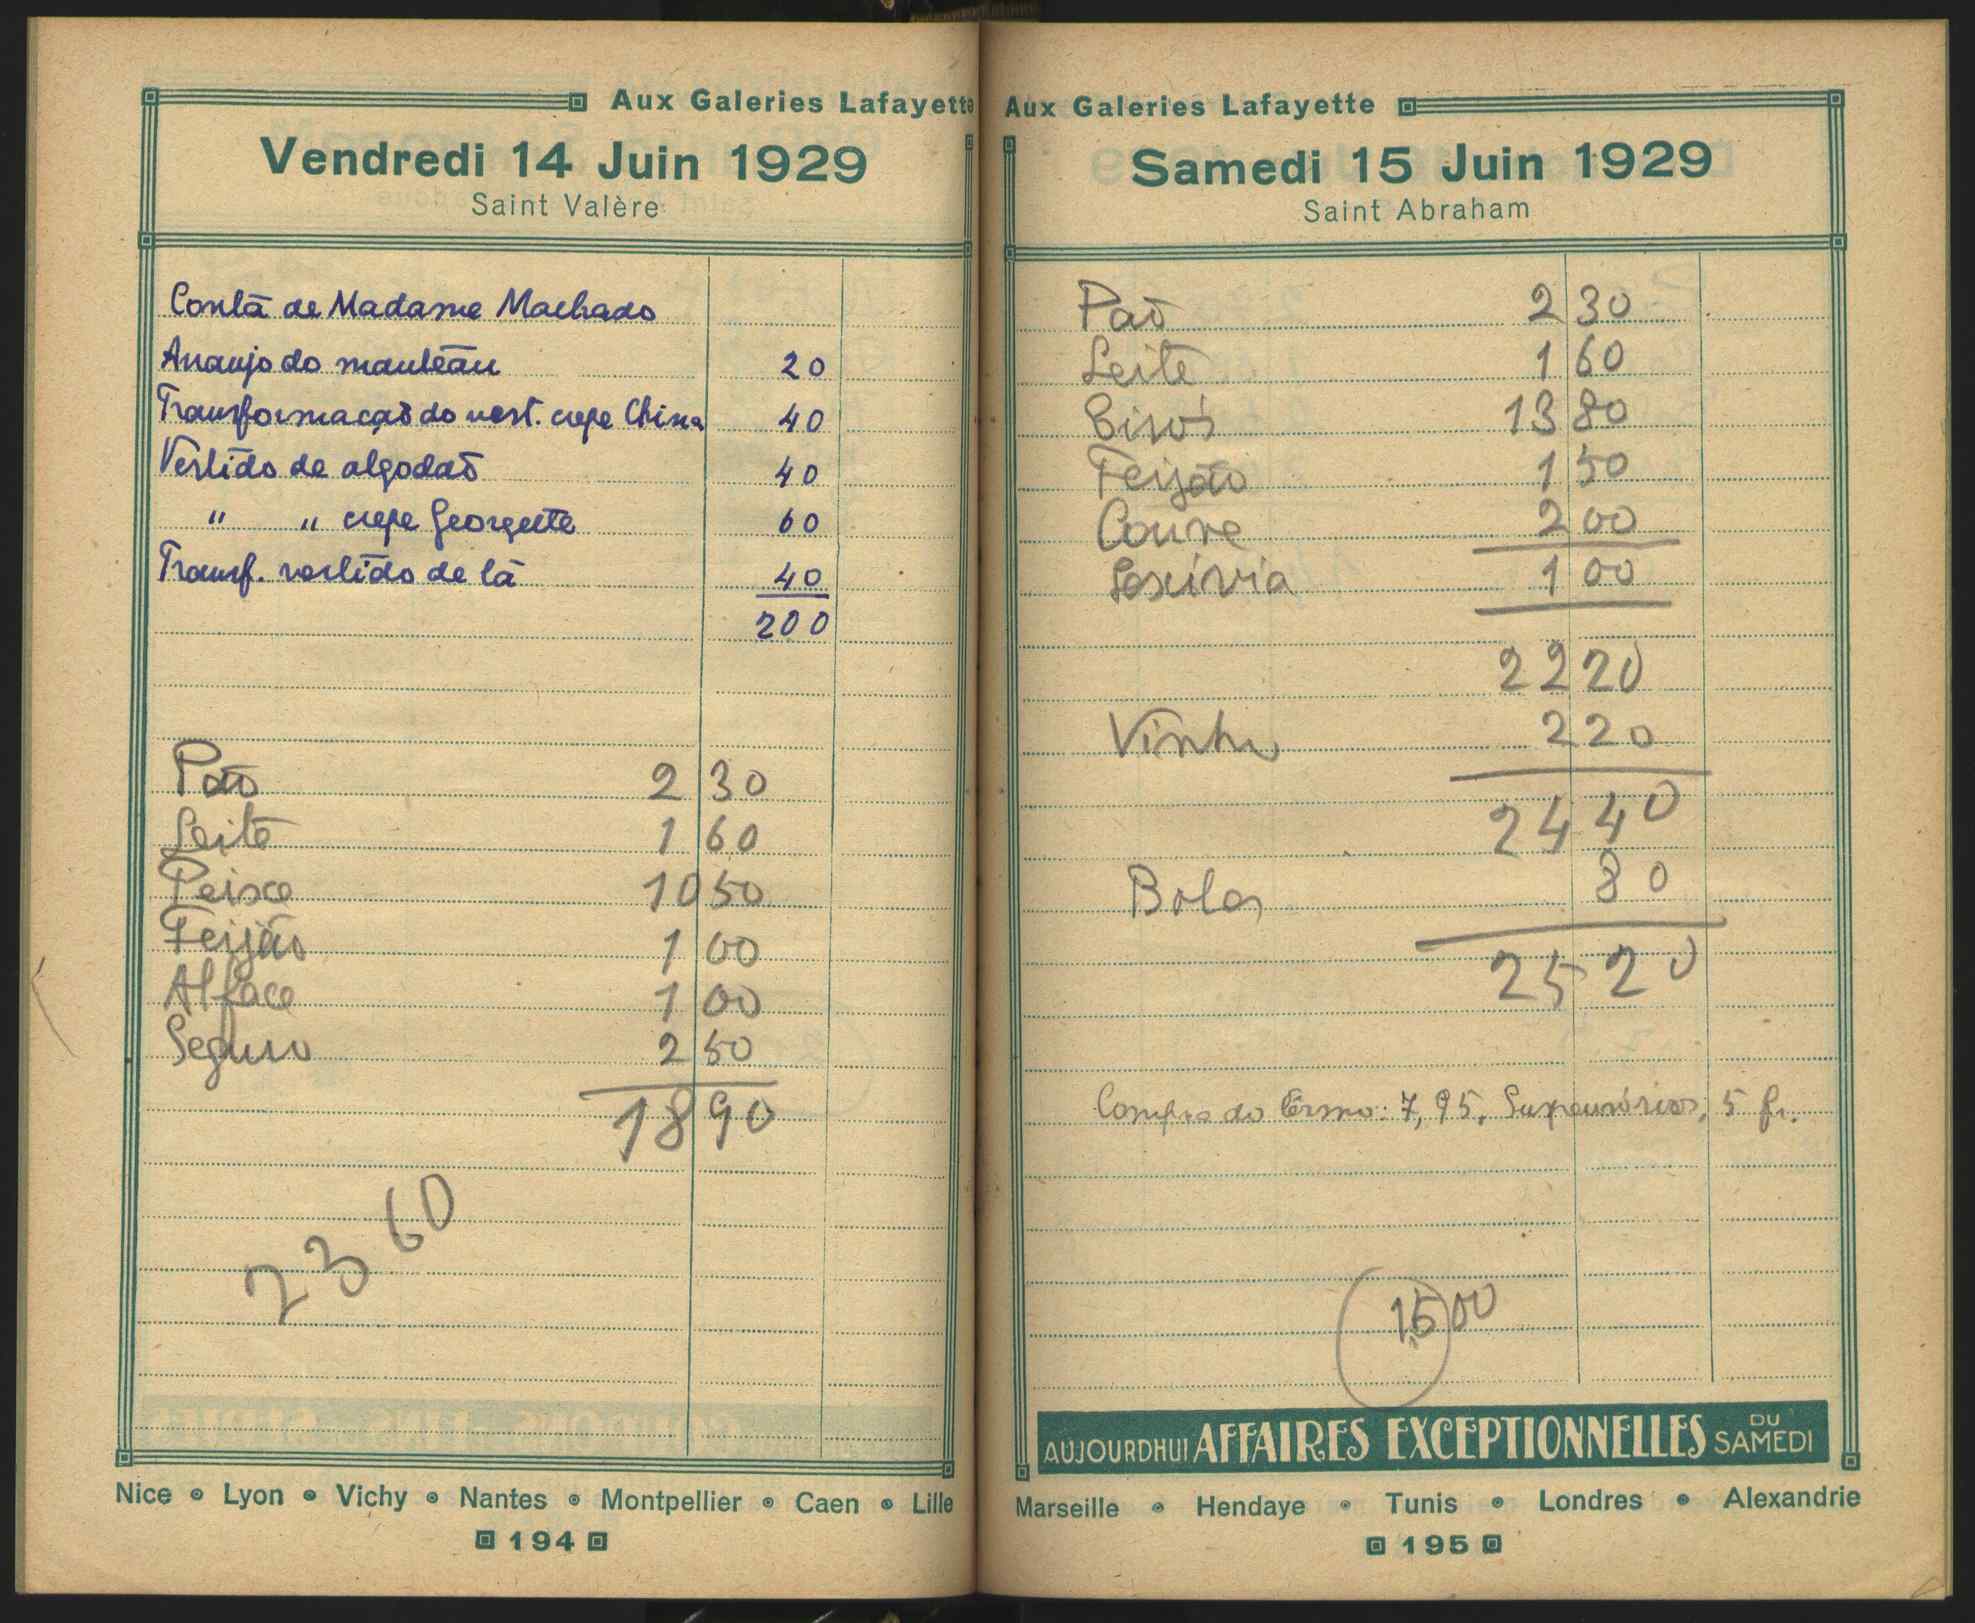 Aux Galeries Lafayette
Vendredi 14 Juin 1929
Saint Valère
Contã de Madame Machado
Arranjo do manteau 20
Transformação do vest. crepe China 40
Vestido de algodão 40
" " crepe Georgette 60
Transf. vestido de lã 40
200
Pão 2 30
Leite 1 60
Peixe 10 50
Feijão 1 00
Alface 1 00
Seguro 2 50
18 90
23 60
Nice • Lyon • Vichy • Nantes • Montpellier • Caen • Lille
194
Aux Galeries Lafayette
Samedi 15 Juin 1929
Saint Abraham
Pão 2 30
Leite 1 60
13 80
Feijão 1 50
Couve 2 00
Lexivia 1 00
22 20
Vinho 2 20
24 40
Bolos 80
25 20
Compra do Ermo: 7,95. 5 fr.
15 00
AUJOURDHUI AFFAIRES EXCEPTIONNELLES DU SAMEDI
Marseille • Hendaye • Tunis • Londres • Alexandrie
195